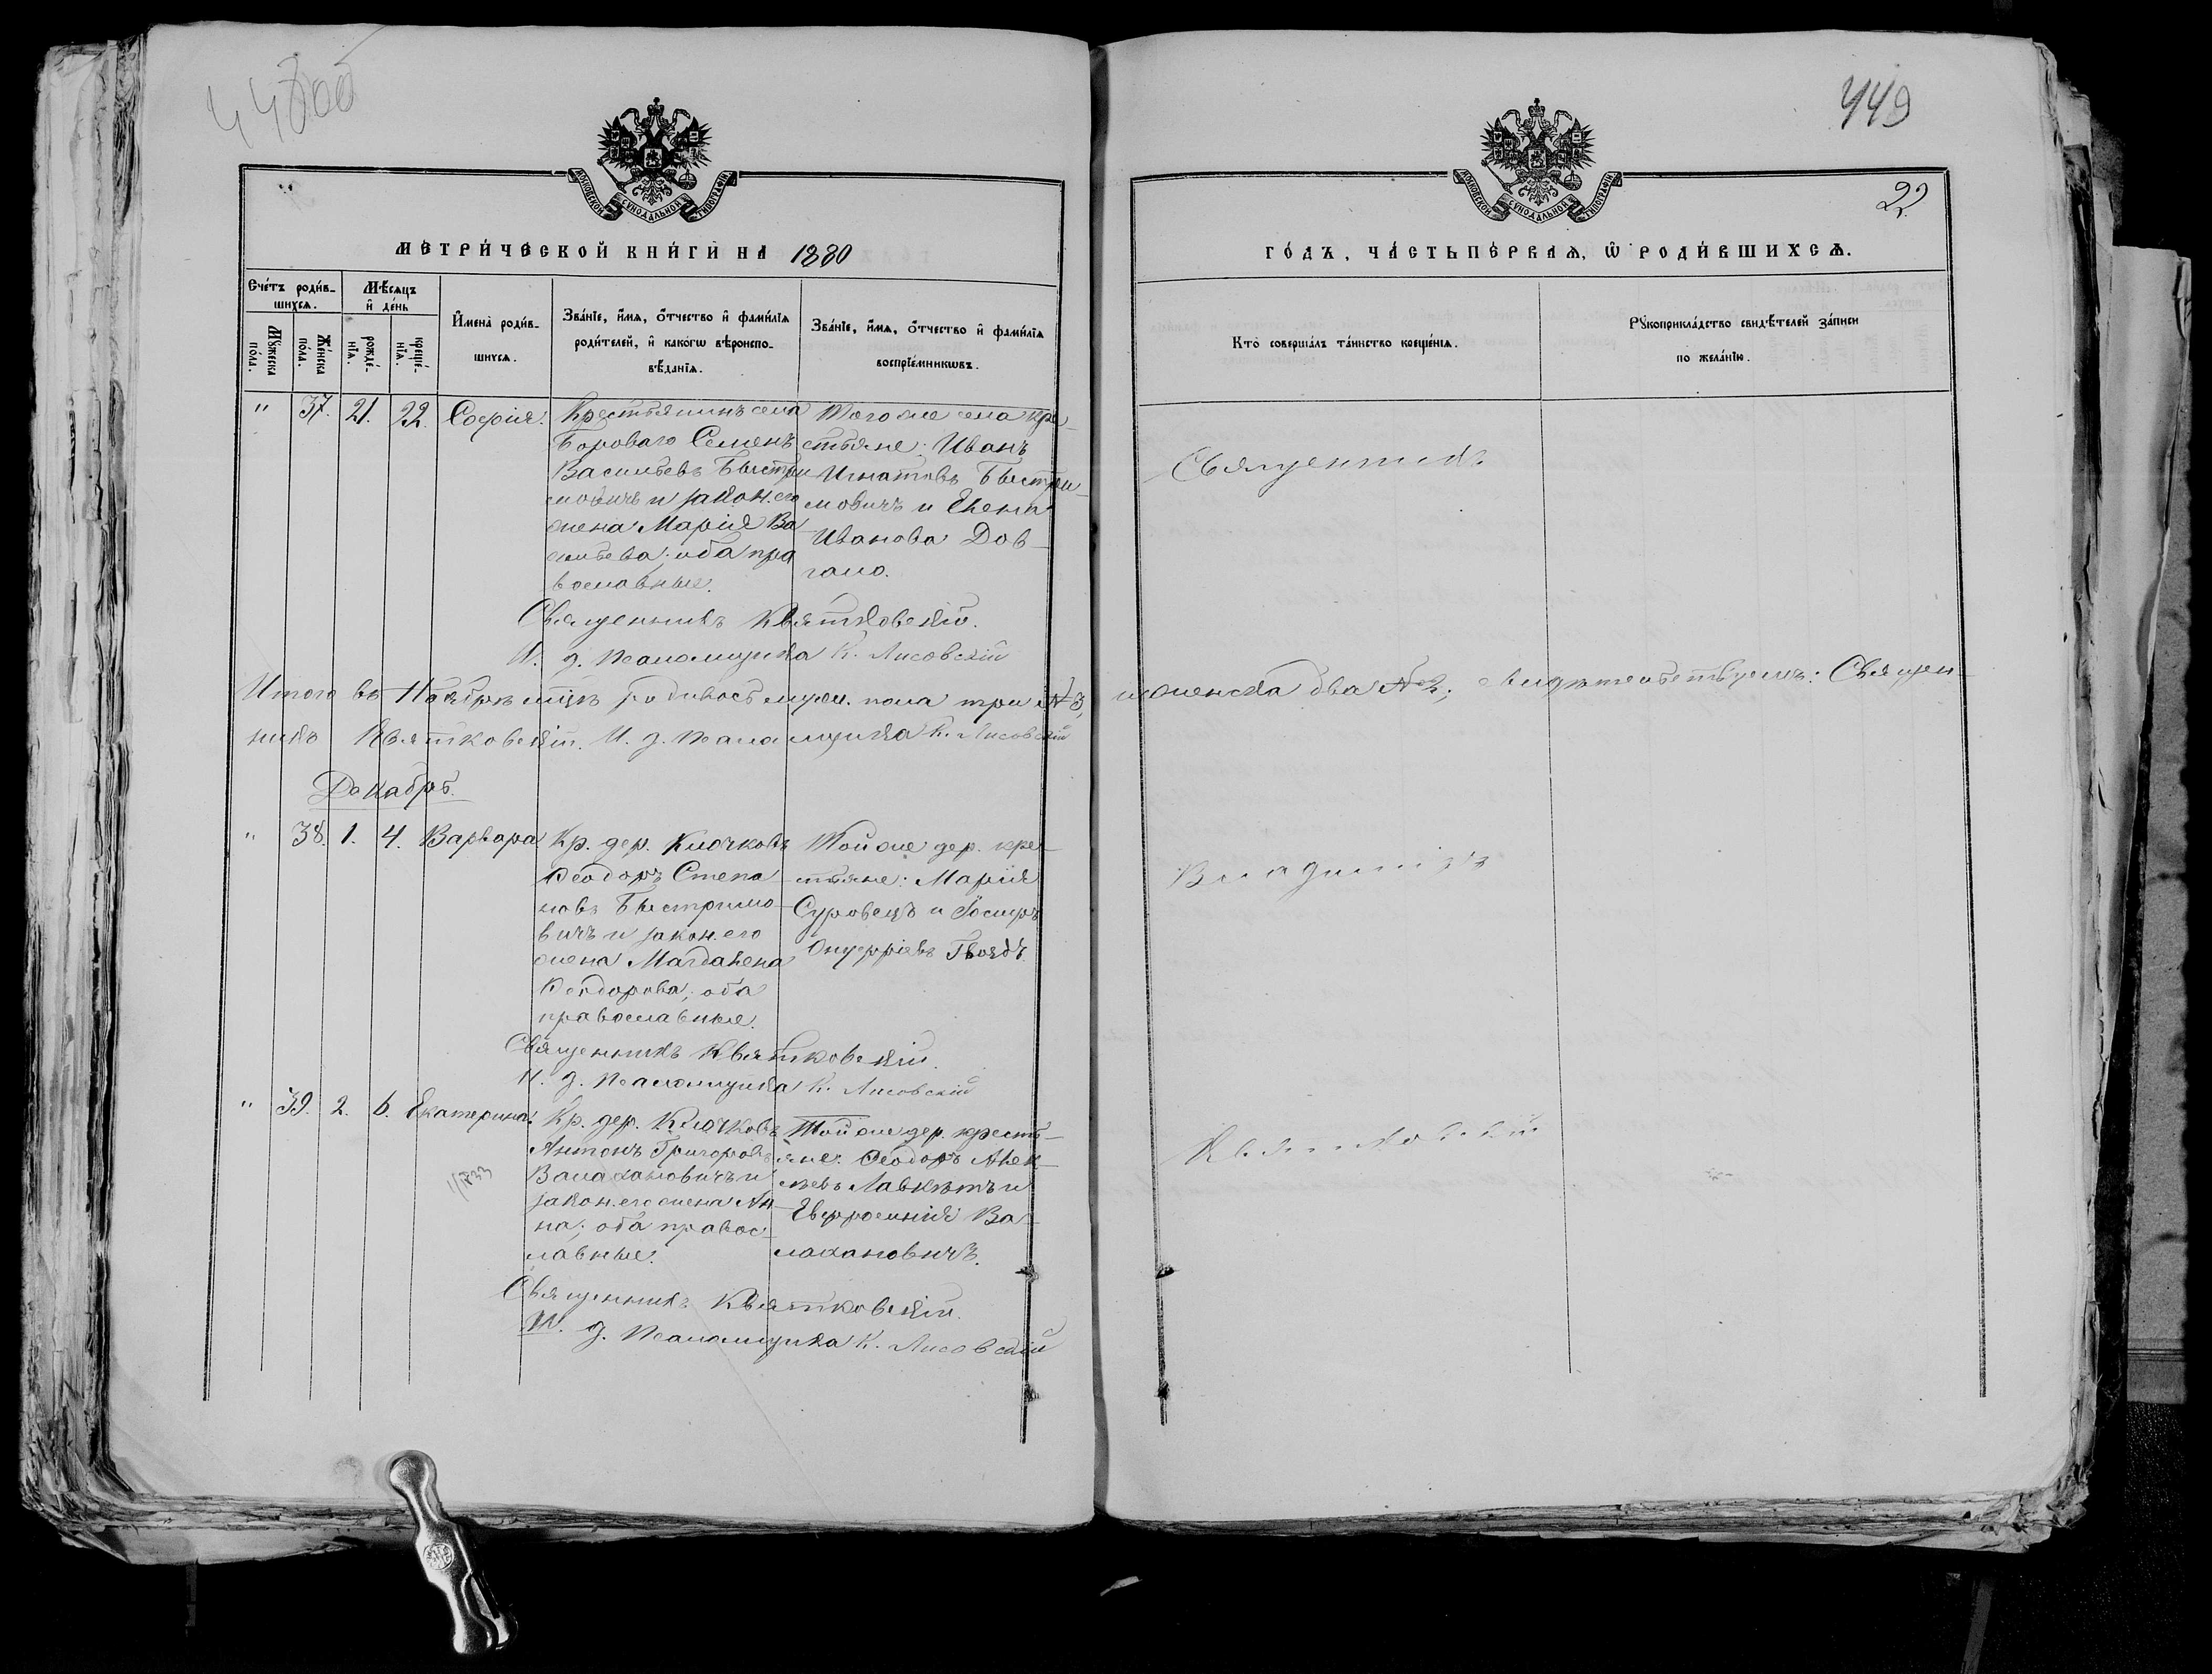 449
22
МЕТРИ́ЧЕСКОЙ КНИ́ГИ НА 1880
ГО́ДЪ, ЧА́СТЬ ПЕ́РВАѦ, Ѡ҆ РОДИ́ВШИХСѦ.
МОСКОВСКОЙ СѴНОДАЛЬНОЙ ТИПОГРАФІИ
МОСКОВСКОЙ СѴНОДАЛЬНОЙ ТИПОГРАФІИ
Сче́тъ роди́в-
шихсѧ.
Мꙋ́жеска
по́ла.
Же́нска
по́ла.
Мѣ́сѧцъ
и҆ де́нь
рожде́-
нїѧ.
креще́-
нїѧ.
И҆мена̀ роди́в-
шихсѧ.
Зва́нїе, и҆́мѧ, ѻ҆́тчество и҆ фамѝлїѧ
роди́телей, и҆ како́гѡ вѣроиспо-
вѣ́данїѧ.
Зва́нїе, и҆́мѧ, ѻ҆́тчество и҆ фами́лїѧ
воспрїе́мникѡвъ.
Кто̀ соверша́лъ та́инство креще́нїѧ.
Рꙋкоприкла́дство свидѣ́телей за́писи
по жела́нїю.
" 37. 21. 22. Софія.
Крестьянинъ села
Бороваго Семенъ
Васильевъ Быстри
мовичъ и закон. его
жена Марія Ва
сильева; оба пра
вославные.
Того же села кре-
стьяне: Иванъ
Игнатовъ Быстри-
мовичъ и Елена
Иванова Дов-
гало.
Священникъ
Священникъ Квятковскій.
И. д. Псаломщика К. Лисовскій
Итого въ Ноябрѣ мцѣ родилось муж. пола три №3, и женска два №2; свидѣтельствуемъ: Священ-
никъ Квятковскій. И. д. Псаломщика К. Лисовскій
Декабрь.
" 38. 1. 4. Варвара
Кр. дер. Клочковъ
Ѳеодоръ Степа
новъ Быстримо-
вичъ и закон. его
жена Магдалена
Ѳеодорова; оба
православные.
Той же дер. кре-
стьяне: Марія
Суровецъ и Іосифъ
Онуфріевъ Гвоздь
Владиміръ
Священникъ Квятковскій.
И. д. Псаломщика К. Лисовскій
" 39. 2. 6. Екатерина.
Кр. дер. Клочковъ
Антонъ Григоровъ
Валахановичъ и
закон. его жена Ан-
на; оба правос-
лавные.
Той же дер. кресть-
яне: Ѳеодоръ Алек-
сѣевъ Лавкѣтъ и
Евфросинія Ва-
лахановичъ.
Квятковскій
Священникъ Квятковскій.
И. д. Псаломщика К. Лисовскій